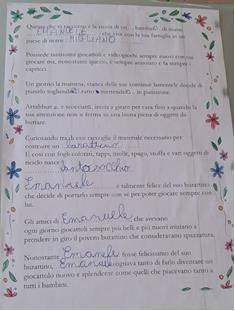 Questa che vi racconto è la storia di un... bambino di nome
EMANUELE che vive con la sua famiglia in un
paese di nome
Possiede tantissimi giocattoli e videogiochi sempre nuovi con cui
giocare ma, nonostante questo, è sempre annoiato e fa sempre i
capricci.
Un giorno la mamma, stanca delle sue continue lamentele decide di
portarlo
Arrabbiat o e scocciat o, inizia a girare per vara fino a quando la
tua attenzione non si ferma su una buona piena di oggetti da
buttare.
Curiosando tra di essi raccoglie il materiale necessario per
costruire un burattino
E così con fogli colorati, tappi, molle, spago, stoffa e vari oggetti di
riciclo nasce
Emanuele è talmente felice del suo burattino
che decide di portarlo sempre con sé per poter giocare sempre con
lui.
Gli amici di Emanuele che avevano
ogni giorno giocattoli sempre più belli e più nuovi iniziano a
prendere in giro il povero burattino che consideravano spazzatura.
Nonostante Emanuele fosse felicissimo del suo
burattino, Emanuele cognava tanto di farlo diventare un
giocattolo nuovo e splendente come quelli che piacevano tanto a
tutti i bambini.